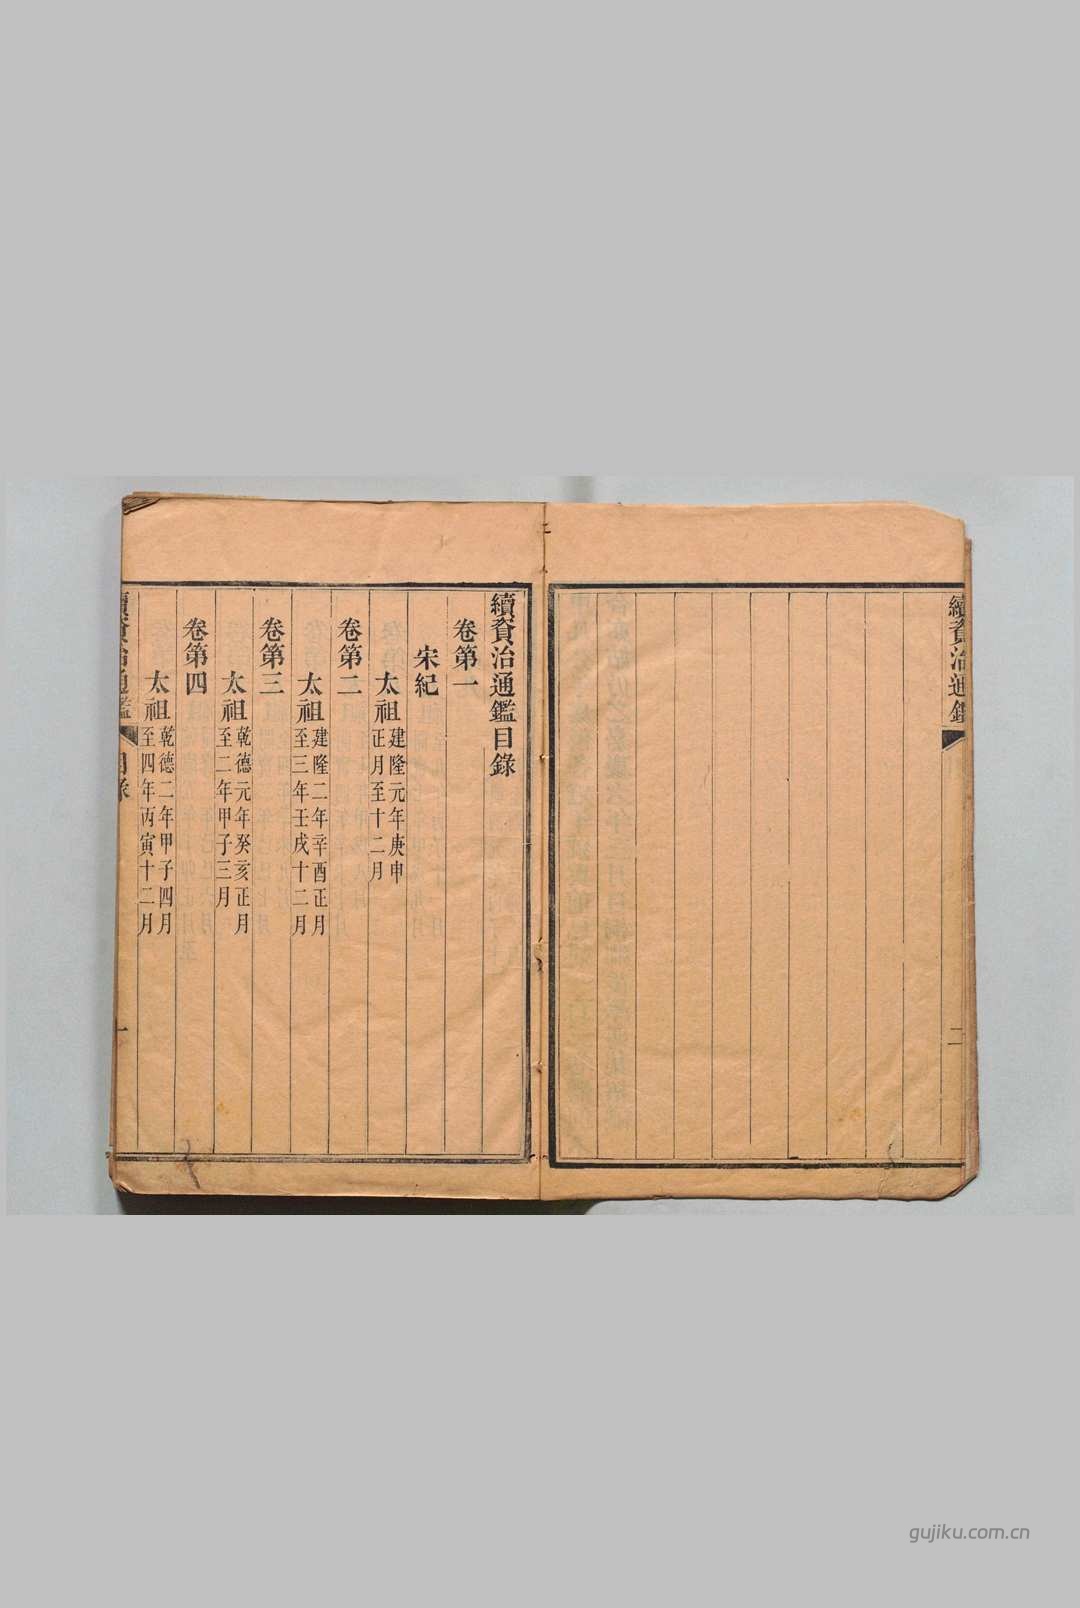 續資治通鑑
二
續資治通鑑目錄
卷第一
宋紀
太祖 建隆元年庚申
正月至十二月
卷第二
太祖 建隆二年辛酉正月
至三年壬戌十二月
卷第三
太祖 乾德元年癸亥正月
至二年甲子三月
卷第四
太祖 乾德二年甲子四月
至四年丙寅十二月
續資治通鑑
目錄
一
gujiku.com.cn